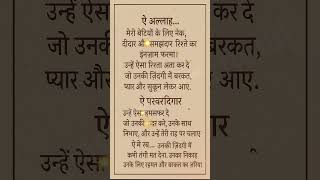 ऐ अल्लाह...
मेरी बेटियों के लिए नेक,
दीदार और समझदार रिश्ते का
इंतज़ाम फरमा।
उन्हें ऐसा रिश्ता अता कर दे
जो उनकी ज़िंदगी में बरकत,
प्यार और सुकून लेकर आए.
ऐ परवरदिगार
उन्हें ऐसा हमसफर दे
जो उनकी करे, उनके साथ
निभाए, और उन्हें तेरी राह पर चलाए
ऐ मेरे रब... उनकी ज़िंदगी में
कभी तंगी मत देना. उनका निकाह
उनके लिए रहमत और बरकत का ज़रिया